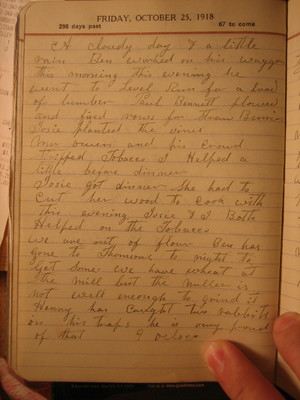 FRIDAY, OCTOBER 25, 1918
298 days past 67 to come
A Cloudy day & a little
rain Ben worked on his waggon
this morning this evening he
went to Level Run for a load
of lumber Paul Bennett plowed
and fixed rows for Straw Berries
Josie planted the vines
Ann owens and his Crowd
Tripped Tobacco I Helped a
little before dinner
Josie got dinner She had to
Cut her wood to Cook with
this evening Josie & I Both
Helped on the Tobacco
we are out of flour Ben has
gone to Thomsons to night to
Get Some we have wheat at
the mill but the miller is
not well enough to grind it
Henry has Caught two rabbits
on his traps he is very proud
of that 9 oclock